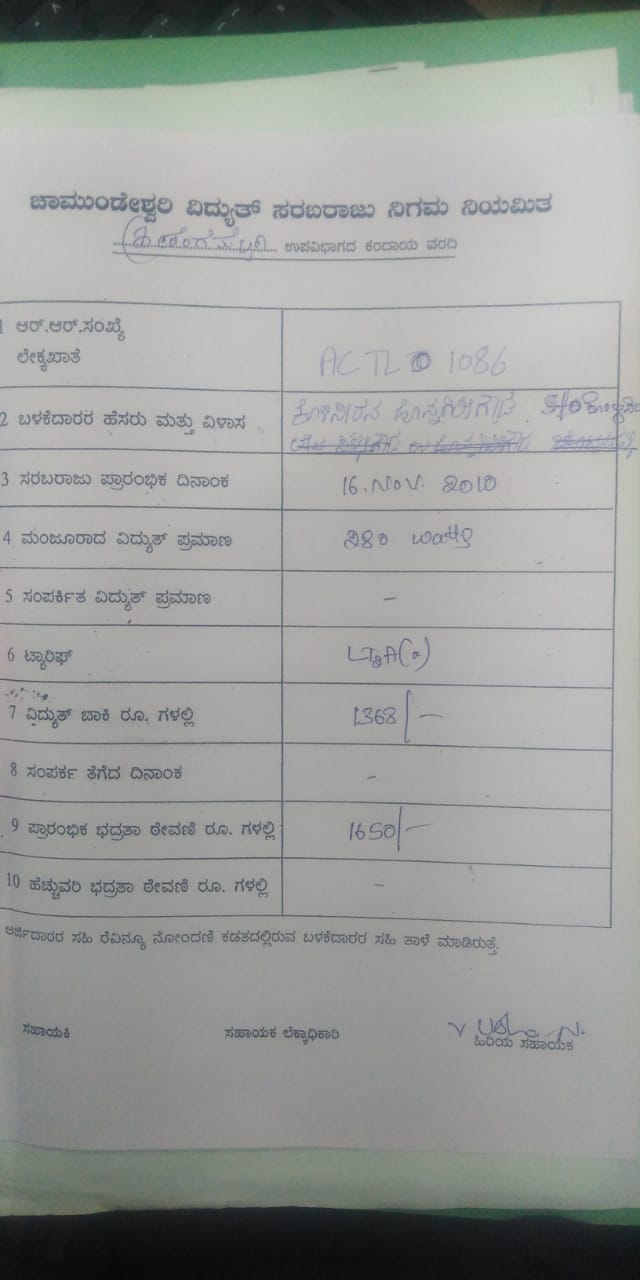 ಚಾಮುಂಡೇಶ್ವರಿ ವಿದ್ಯುತ್ ಸರಬರಾಜು ನಿಗಮ ನಿಯಮಿತ
ಉಪವಿಭಾಗದ ಕಂದಾಯ ವರದಿ
1 ಆರ್.ಆರ್.ಸಂಖ್ಯೆ
ಲೇಕ್ಕಖಾತೆ
ACTL 1086
2 ಬಳಕೆದಾರರ ಹೆಸರು ಮತ್ತು ವಿಳಾಸ
S/o
3 ಸರಬರಾಜು ಪ್ರಾರಂಭಿಕ ದಿನಾಂಕ 16.NOV. 2010
4 ಮಂಜೂರಾದ ವಿದ್ಯುತ್ ಪ್ರಮಾಣ 280 watts
5 ಸಂಪರ್ಕಿತ ವಿದ್ಯುತ್ ಪ್ರಮಾಣ -
6 ಟ್ಯಾರಿಫ್
7 ವಿದ್ಯುತ್ ಬಾಕಿ ರೂ. ಗಳಲ್ಲಿ 1368/-
8 ಸಂಪರ್ಕ ತೆಗೆದ ದಿನಾಂಕ -
9 ಪ್ರಾರಂಭಿಕ ಭದ್ರತಾ ಠೇವಣಿ ರೂ. ಗಳಲ್ಲಿ 1650/-
10 ಹೆಚ್ಚುವರಿ ಭದ್ರತಾ ಠೇವಣಿ ರೂ. ಗಳಲ್ಲಿ -
ಅರ್ಜಿದಾರರ ಸಹಿ ರೆವಿನ್ಯೂ ನೋಂದಣಿ ಕಡತದಲ್ಲಿರುವ ಬಳಕೆದಾರರ ಸಹಿ ತಾಳೆ ಮಾಡಿರುತ್ತೆ.
ಸಹಾಯಕಿ ಸಹಾಯಕ ಲೆಕ್ಕಾಧಿಕಾರಿ ಹಿರಿಯ ಸಹಾಯಕ